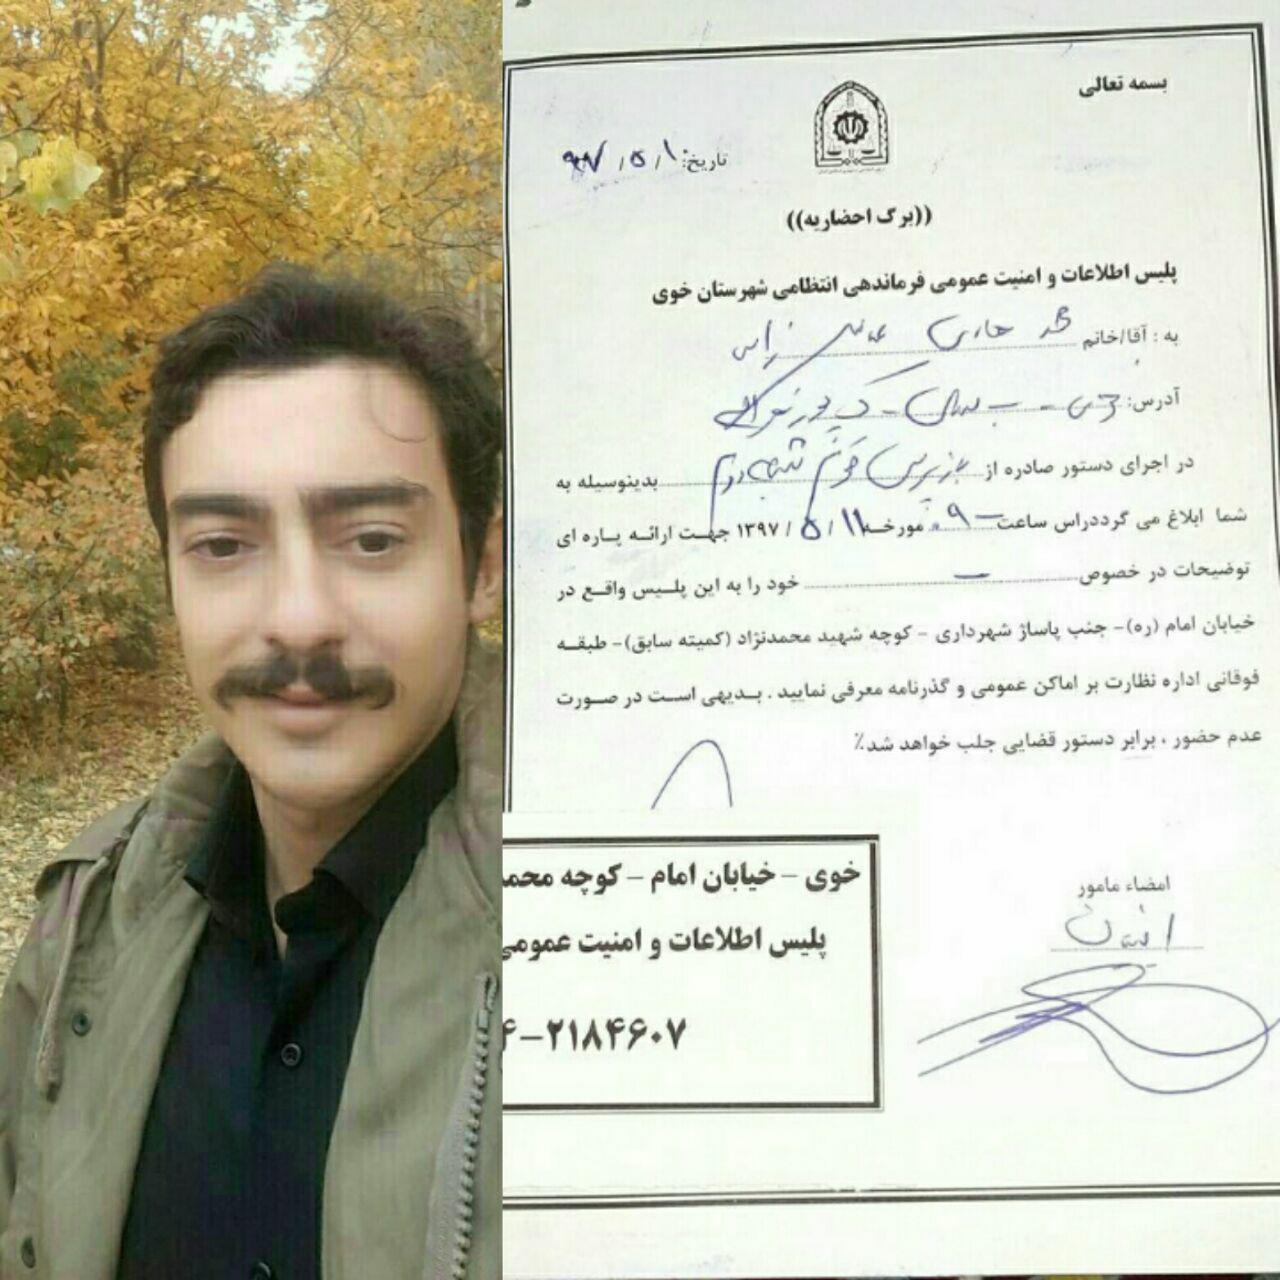 بسمه تعالی
تاریخ: ۹۷/۵/۱۰
((برگ احضاریه))
پلیس اطلاعات و امنیت عمومی فرماندهی انتظامی شهرستان خوی
به : آقا/خانم محمد
آدرس: خوی
در اجرای دستور صادره از بازپرس محترم شعبه دوم بدینوسیله به
شما ابلاغ می گردد راس ساعت ۹ مورخه ۱۳۹۷/۵/۱۱ جهت ارائه پاره ای
توضیحات در خصوص – خود را به این پلیس واقع در
خیابان امام (ره)- جنب پاساژ شهرداری - کوچه شهید محمدنژاد (کمیته سابق)- طبقه
فوقانی اداره نظارت بر اماکن عمومی و گذرنامه معرفی نمایید . بدیهی است در صورت
عدم حضور ، برابر دستور قضایی جلب خواهد شد٪
امضاء مامور
خوی – خیابان امام – کوچه محمد
پلیس اطلاعات و امنیت عمومی
۴-۲۱۸۴۶۰۷